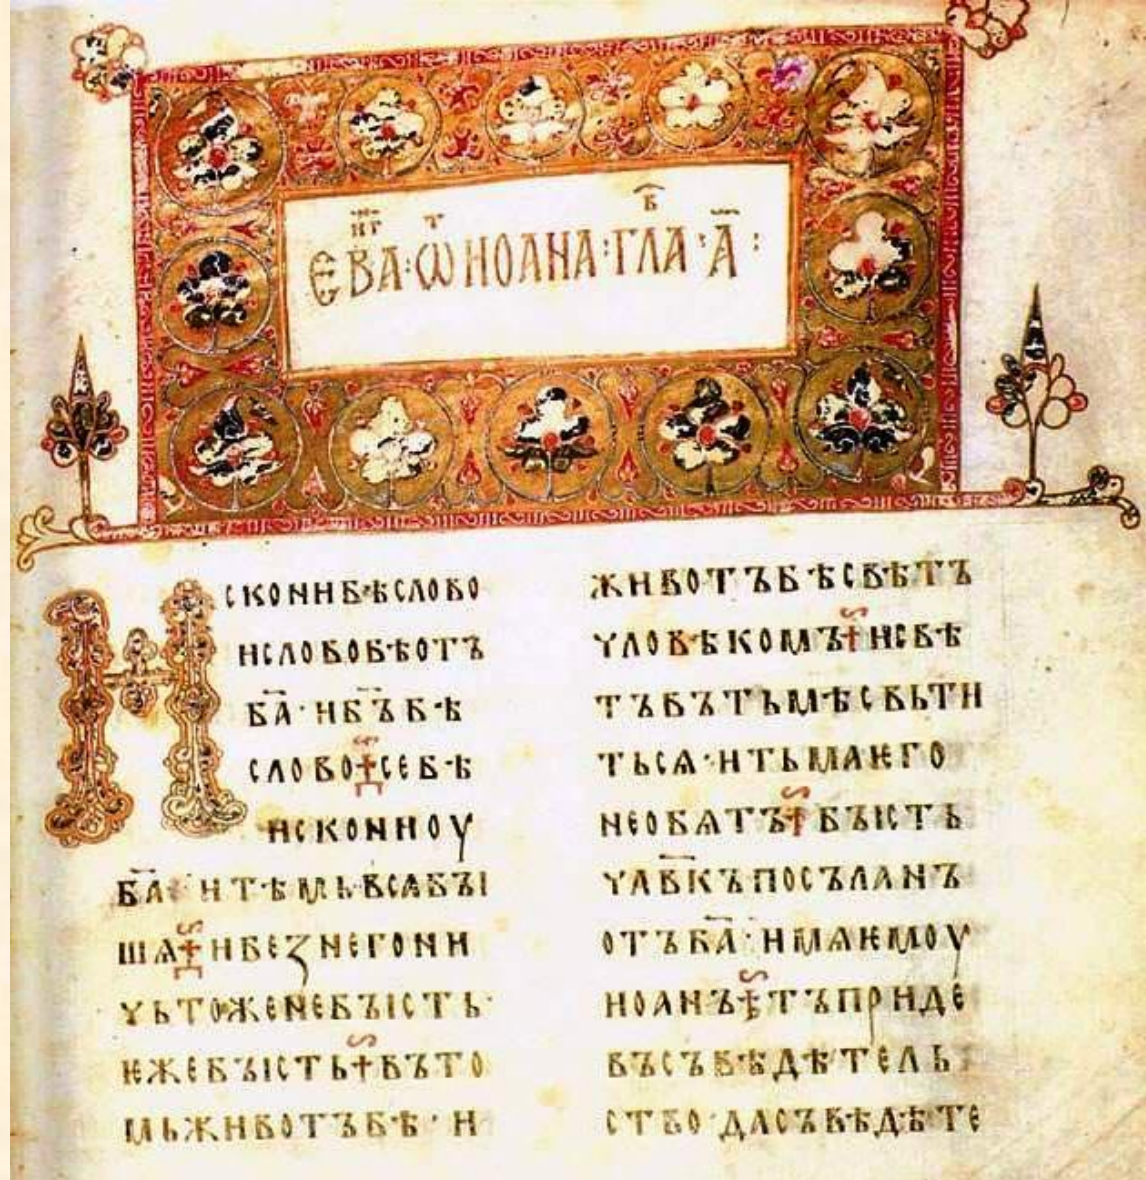 ЕВА҃НГ·ѠТ ИОАНА:ГЛАВ·А҃:
Искони бѣ слово
и слово бѣ отъ
б҃а· и б҃ъ бѣ
слово се бѣ
искони оу
б҃а· и тѣмь вся бꙑ
шѧ и без него ни
чьтоже не бꙑсть·
ѥже бꙑсть въ то
мь животъ бѣ· и
животъ бѣ свѣтъ
чловѣкомъ и свѣ
тъ въ тьмѣ свьти
тьсѧ· и тьма ѥго
не обѧтъ бꙑсть
чл҃вкъ посъланъ
отъ б҃а· имѧ ѥмоу
иоанъ тъ приде
въ съвѣдѣтель
ство· да съвѣдѣте